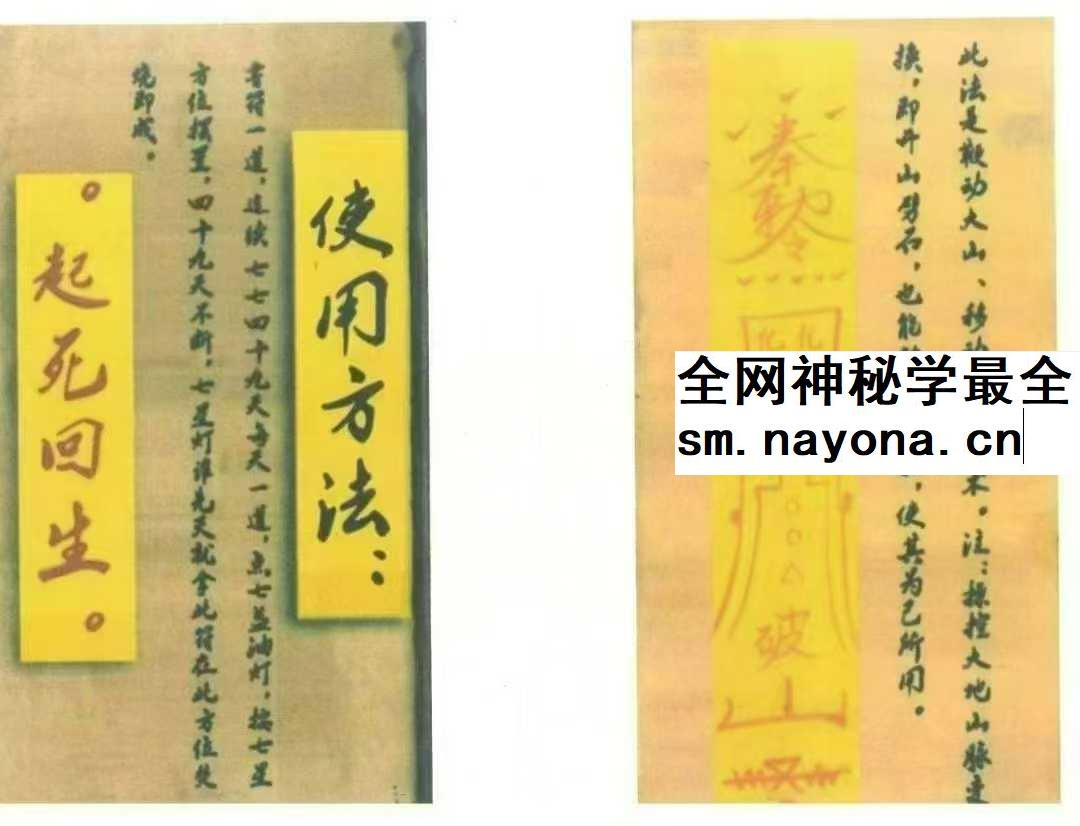 使用方法：
书符一道，连续七七四十九天每天一道，点七盏油灯，按七星
方位摆置，四十九天不断，七星灯谁先灭就拿此符在此方位焚
烧即成。
。起死回生。
此法是鞭动大山、移
术。注：操控大地山脉变
换，即开山劈石，也能
，使其为己所用。
奉
破
山
全网神秘学最全
sm.nayona.cn